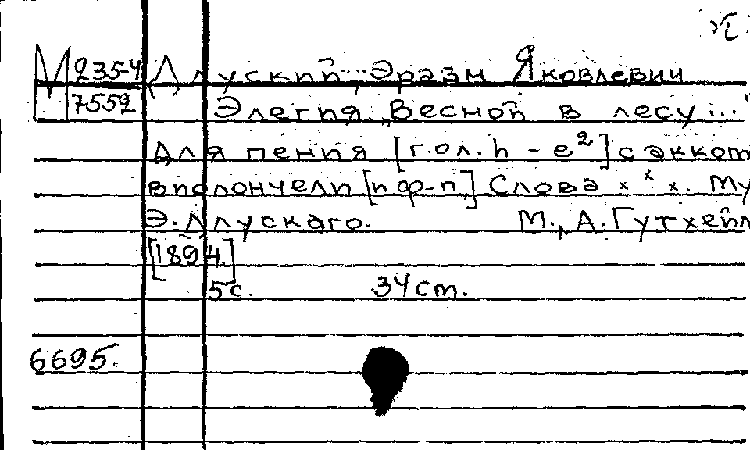 М 235-4 Длуский, Эразм Яковлевич
7552 Элегия „Весной в лесу..."
Для пения [гол. h - e²] с аккот
виолончели [и ф-п.] Слова х х х. Му
Э. Длускаго. М., А. Гутхейл
[1894]
5 с. 34 ст.
6695.